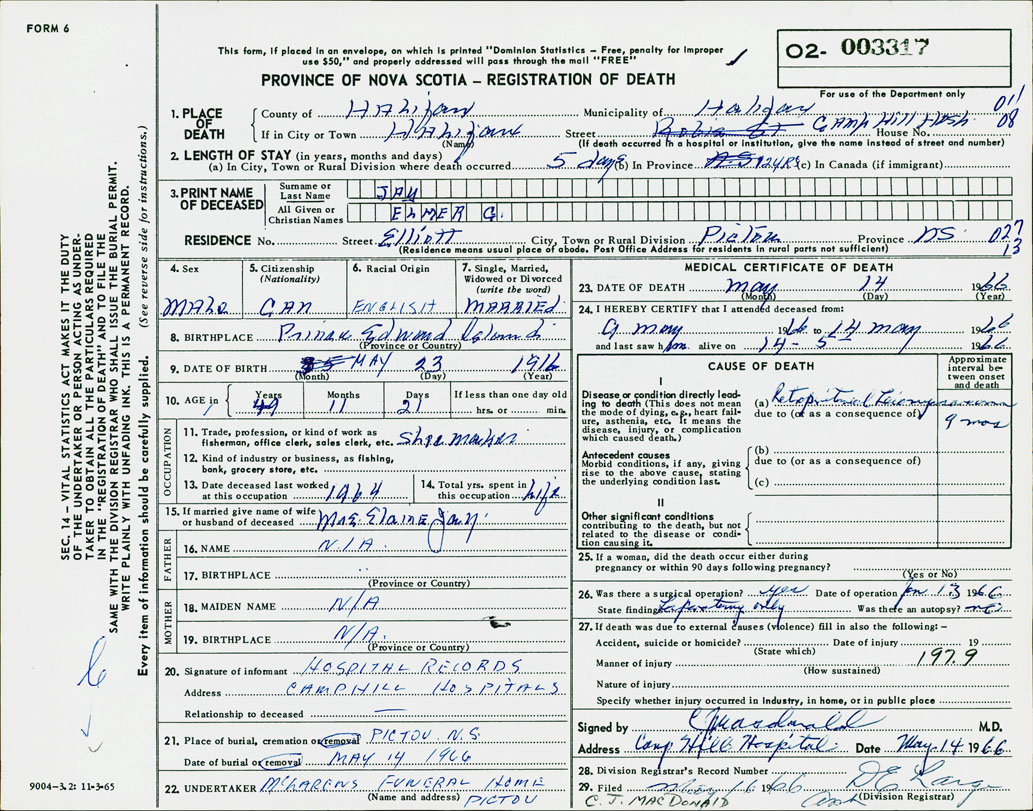 FORM 6
This form, if placed in an envelope, on which is printed "Dominion Statistics – Free, penalty for improper
use $50," and properly addressed will pass through the mail "FREE"
PROVINCE OF NOVA SCOTIA – REGISTRATION OF DEATH
O2- 003317
For use of the Department only
1. PLACE OF DEATH
County of Halifax Municipality of Halifax 011
If in City or Town Halifax Street Robie St Camp Hill Hosp House No. 08
(Name) (If death occurred in a hospital or institution, give the name instead of street and number)
2. LENGTH OF STAY (in years, months and days)
(a) In City, Town or Rural Division where death occurred 5 days (b) In Province 24 YRS (c) In Canada (if immigrant)
3. PRINT NAME OF DECEASED
Surname or Last Name JAY
All Given or Christian Names ELMER G.
RESIDENCE No. Street Elliott City, Town or Rural Division Pictou Province NS 027
(Residence means usual place of abode. Post Office Address for residents in rural parts not sufficient) 13
4. Sex MALE
5. Citizenship (Nationality) CAN
6. Racial Origin ENGLISH
7. Single, Married, Widowed or Divorced (write the word) MARRIED
8. BIRTHPLACE Prince Edward Island
(Province or Country)
9. DATE OF BIRTH MAY 23 1916
(Month) (Day) (Year)
10. AGE in Years 49 Months 11 Days 21 If less than one day old hrs. or min.
OCCUPATION
11. Trade, profession, or kind of work as fisherman, office clerk, sales clerk, etc. Shoe maker
12. Kind of industry or business, as fishing, bank, grocery store, etc.
13. Date deceased last worked at this occupation 1964
14. Total yrs. spent in this occupation life
15. If married give name of wife or husband of deceased Mrs. Elaine Jay
FATHER
16. NAME N/A
17. BIRTHPLACE
(Province or Country)
MOTHER
18. MAIDEN NAME N/A
19. BIRTHPLACE N/A
(Province or Country)
20. Signature of informant HOSPITAL RECORDS
Address CAMPHILL HOSPITALS
Relationship to deceased —
21. Place of burial, cremation or removal PICTOU N.S.
Date of burial or removal MAY 14 1966
22. UNDERTAKER MCLARENS FUNERAL HOME
(Name and address) PICTOU
MEDICAL CERTIFICATE OF DEATH
23. DATE OF DEATH May 14 1966
(Month) (Day) (Year)
24. I HEREBY CERTIFY that I attended deceased from:
9 May 1966 to 14 May 1966
and last saw him alive on 14-5 1966
CAUSE OF DEATH
Approximate interval between onset and death
I
Disease or condition directly leading to death (This does not mean the mode of dying, e.g., heart failure, asthenia, etc. It means the disease, injury, or complication which caused death.)
(a)
due to (or as a consequence of) 9 mos
Antecedent causes
Morbid conditions, if any, giving rise to the above cause, stating the underlying condition last.
(b)
due to (or as a consequence of)
(c)
II
Other significant conditions
contributing to the death, but not related to the disease or condition causing it.
25. If a woman, did the death occur either during pregnancy or within 90 days following pregnancy?
(Yes or No)
26. Was there a surgical operation? yes Date of operation Jan 13 1966
State finding Laparotomy only Was there an autopsy? no
27. If death was due to external causes (violence) fill in also the following: –
Accident, suicide or homicide? Date of injury 19
(State which) 197.9
Manner of injury
(How sustained)
Nature of injury
Specify whether injury occurred in industry, in home, or in public place
Signed by C J Macdonald M.D.
Address Camp Hill Hospital Date May 14 1966
28. Division Registrar's Record Number
29. Filed May 16 1966
C. J. MACDONALD (Division Registrar)
SEC. 14 – VITAL STATISTICS ACT MAKES IT THE DUTY
OF THE UNDERTAKER OR PERSON ACTING AS UNDER-
TAKER TO OBTAIN ALL THE PARTICULARS REQUIRED
IN THE "REGISTRATION OF DEATH" AND TO FILE THE
SAME WITH THE DIVISION REGISTRAR WHO SHALL ISSUE THE BURIAL PERMIT.
WRITE PLAINLY WITH UNFADING INK. THIS IS A PERMANENT RECORD.
Every item of information should be carefully supplied. (See reverse side for instructions.)
9004-3.2: 11-3-65